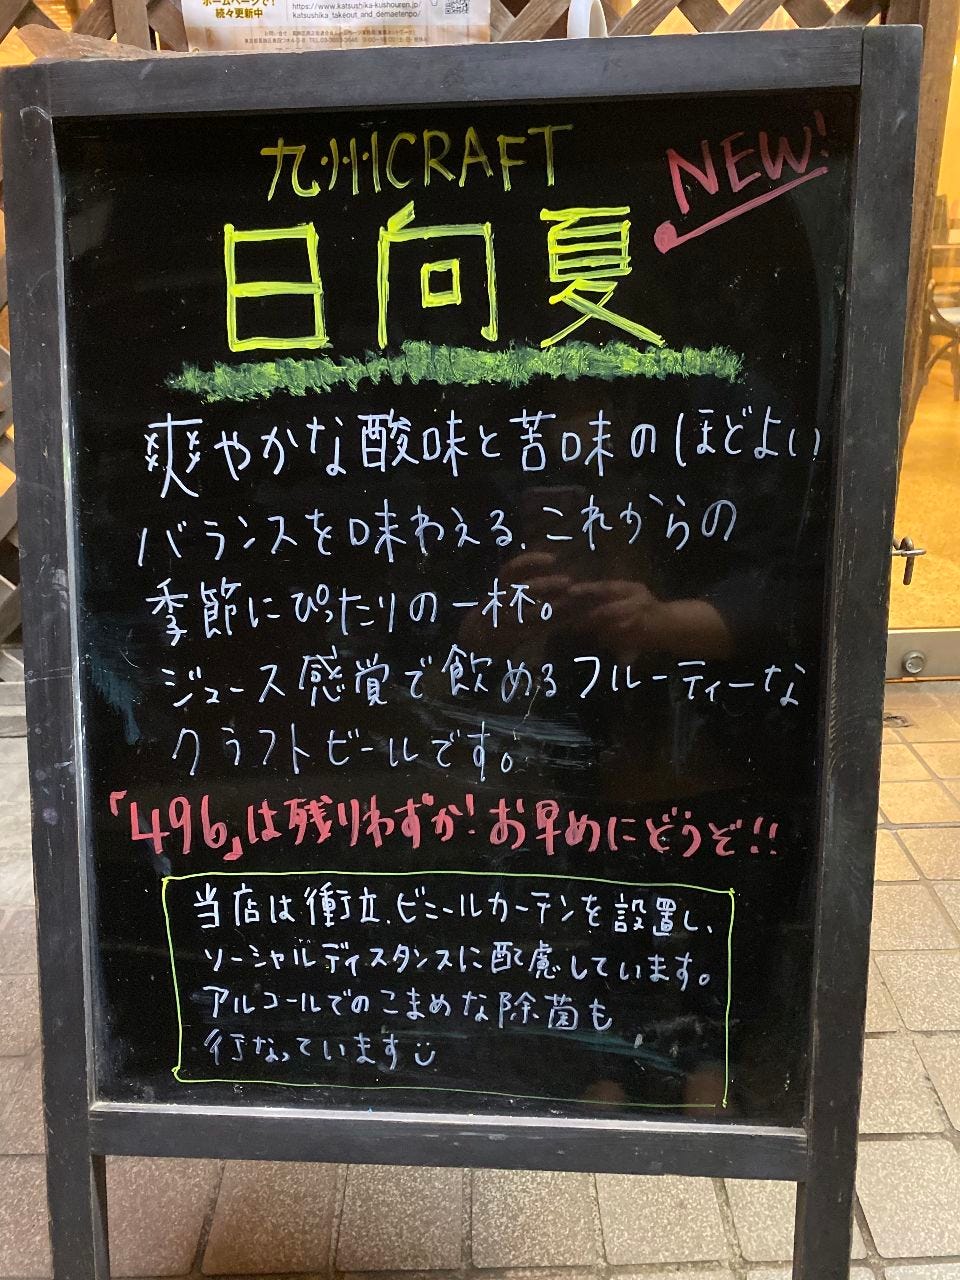 ホームページで!
続々更新中
https://www.katsushika-kushouren.jp/
katsushika_takeout_and_demaetenpo/
九州CRAFT
NEW!
日向夏
爽やかな酸味と苦味のほどよい
バランスを味わえる、これからの
季節にぴったりの一杯。
ジュース感覚で飲めるフルーティーな
クラフトビールです。
「496」は残りわずか!お早めにどうぞ!!
当店は衝立、ビニールカーテンを設置し、
ソーシャルディスタンスに配慮しています。
アルコールでのこまめな除菌も
行なっています